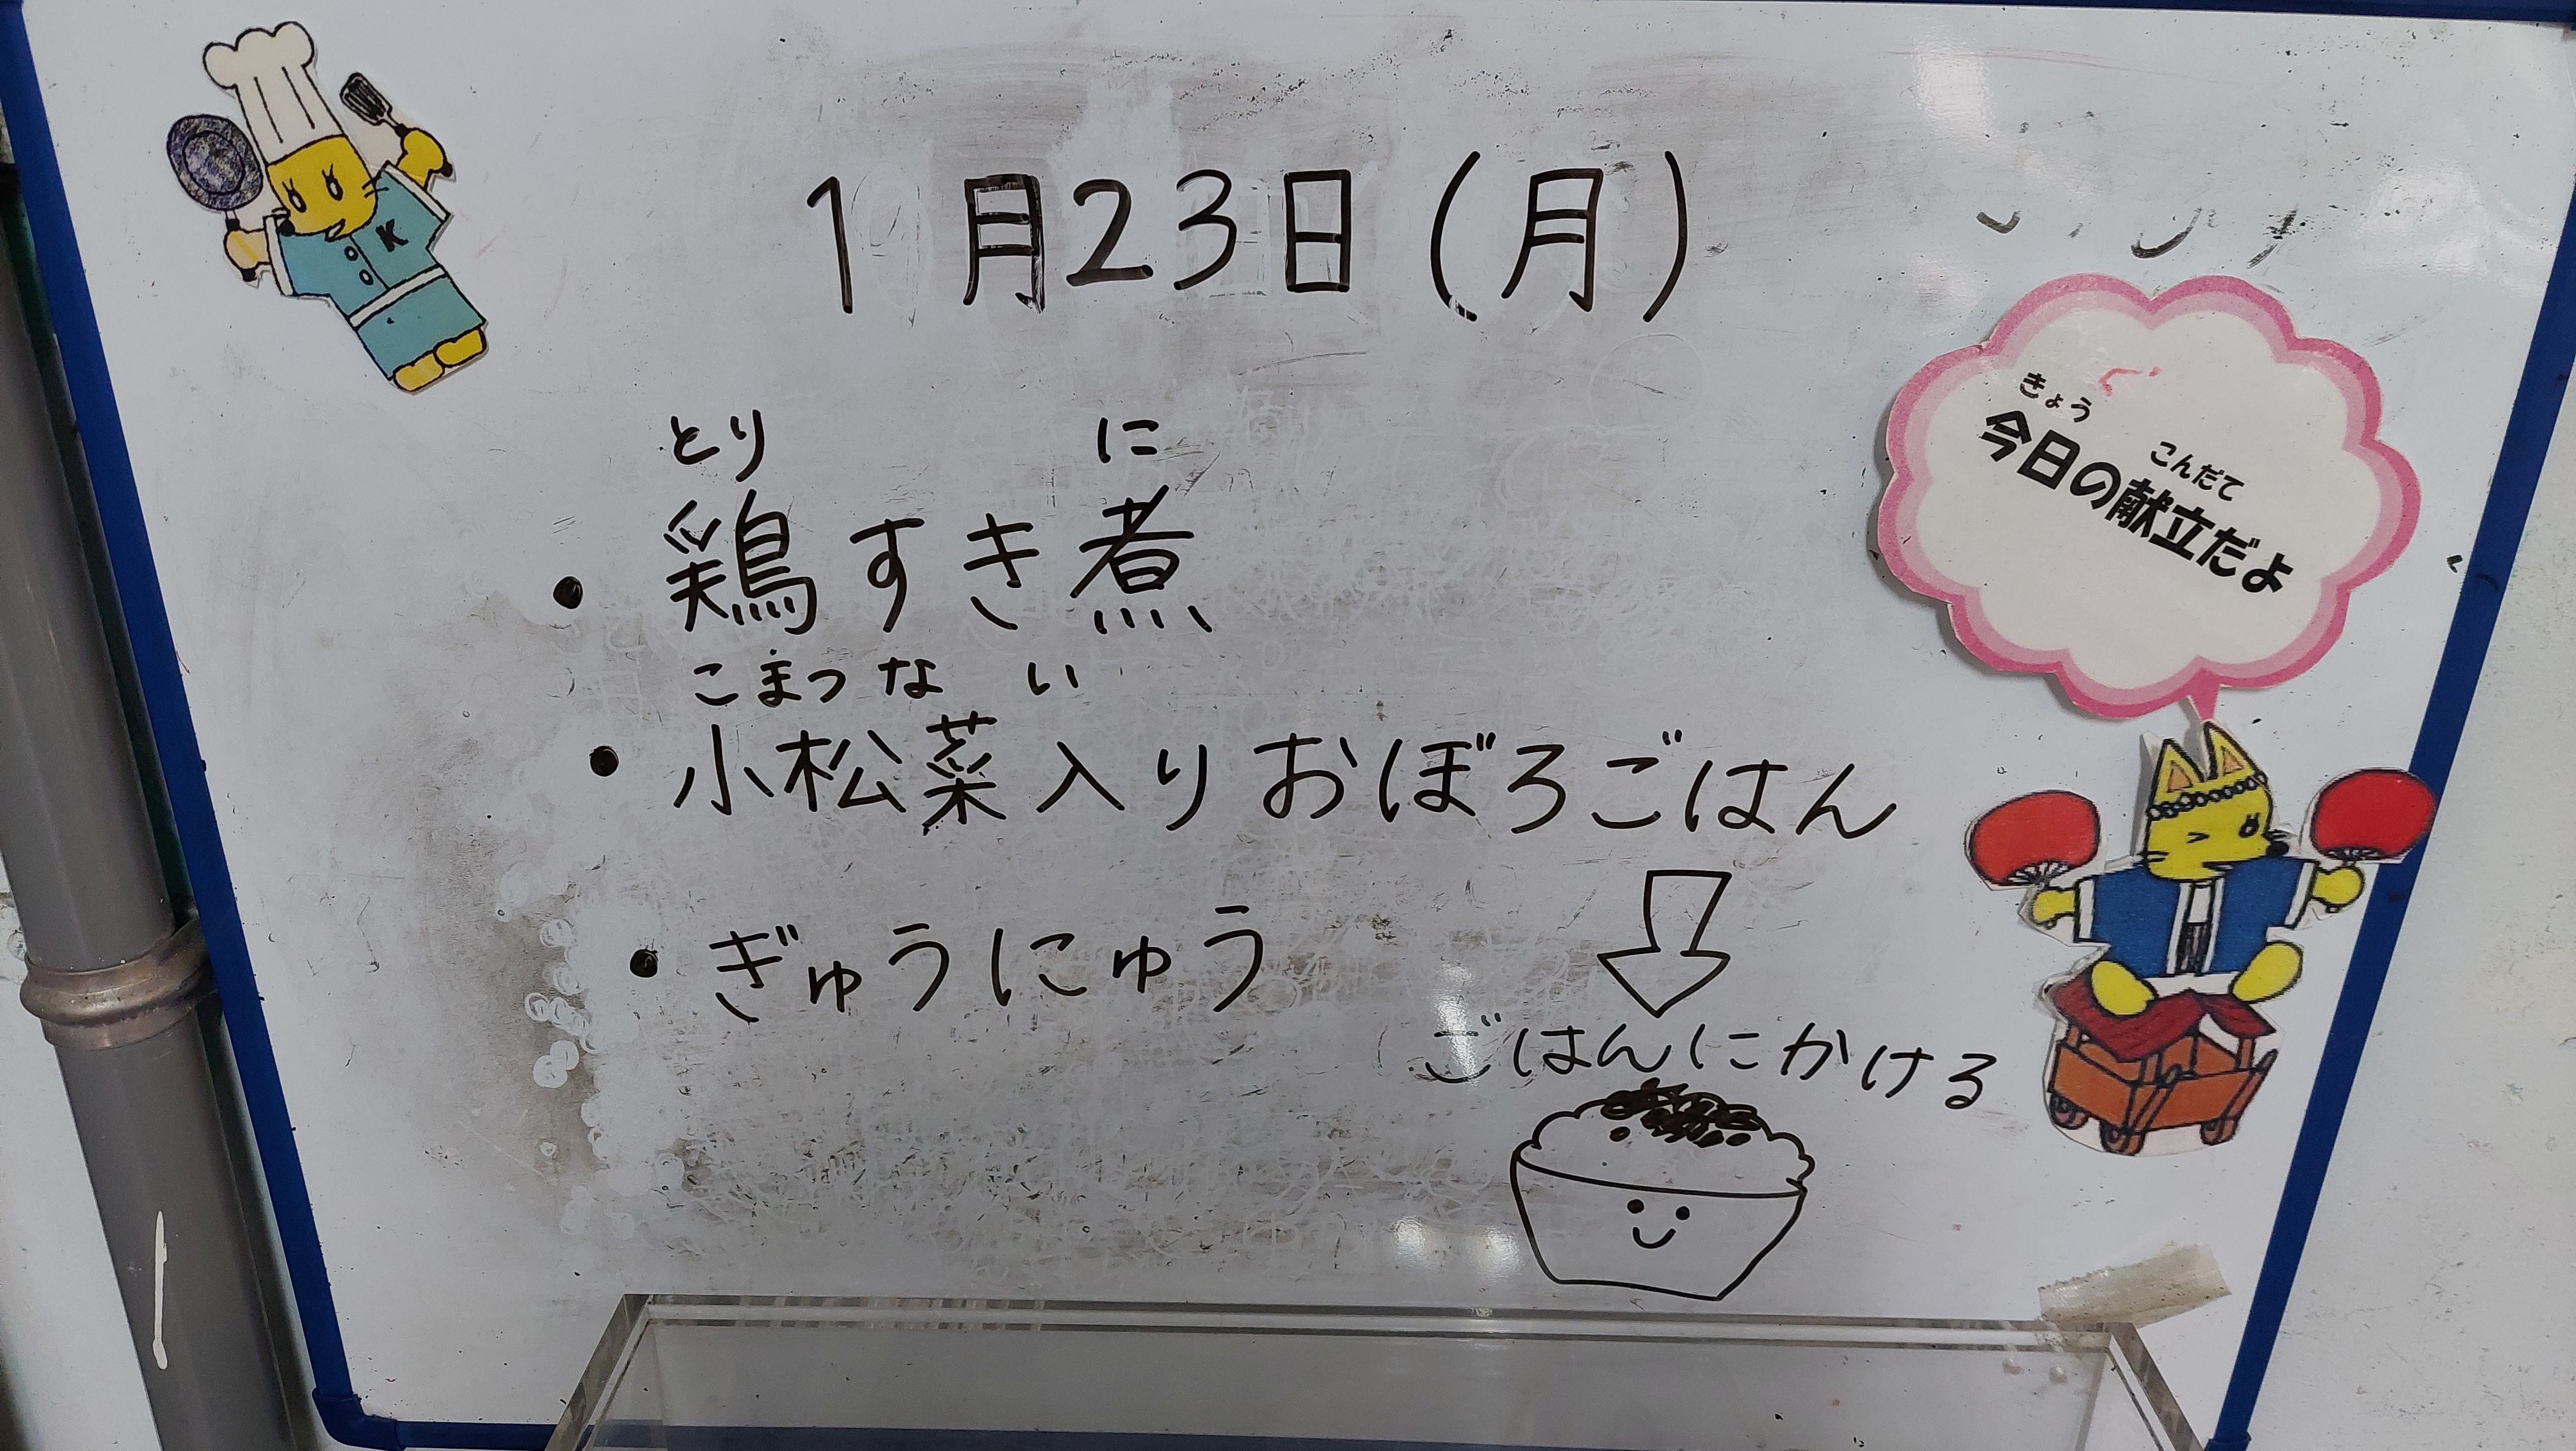 1月23日(月)
きょう
こんだて
今日の献立だよ
とり に
・鶏すき煮
こまつな い
・小松菜入りおぼろごはん
・ぎゅうにゅう
ごはんにかける
K